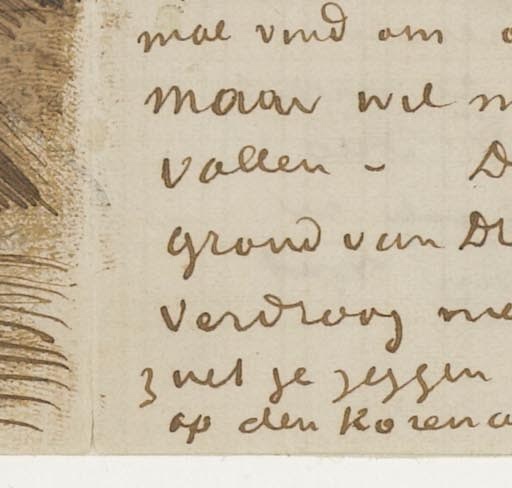 mae vind om
maar wil
vallen -
grond van Dr
verdroog me
zult je zeggen
op den Koren